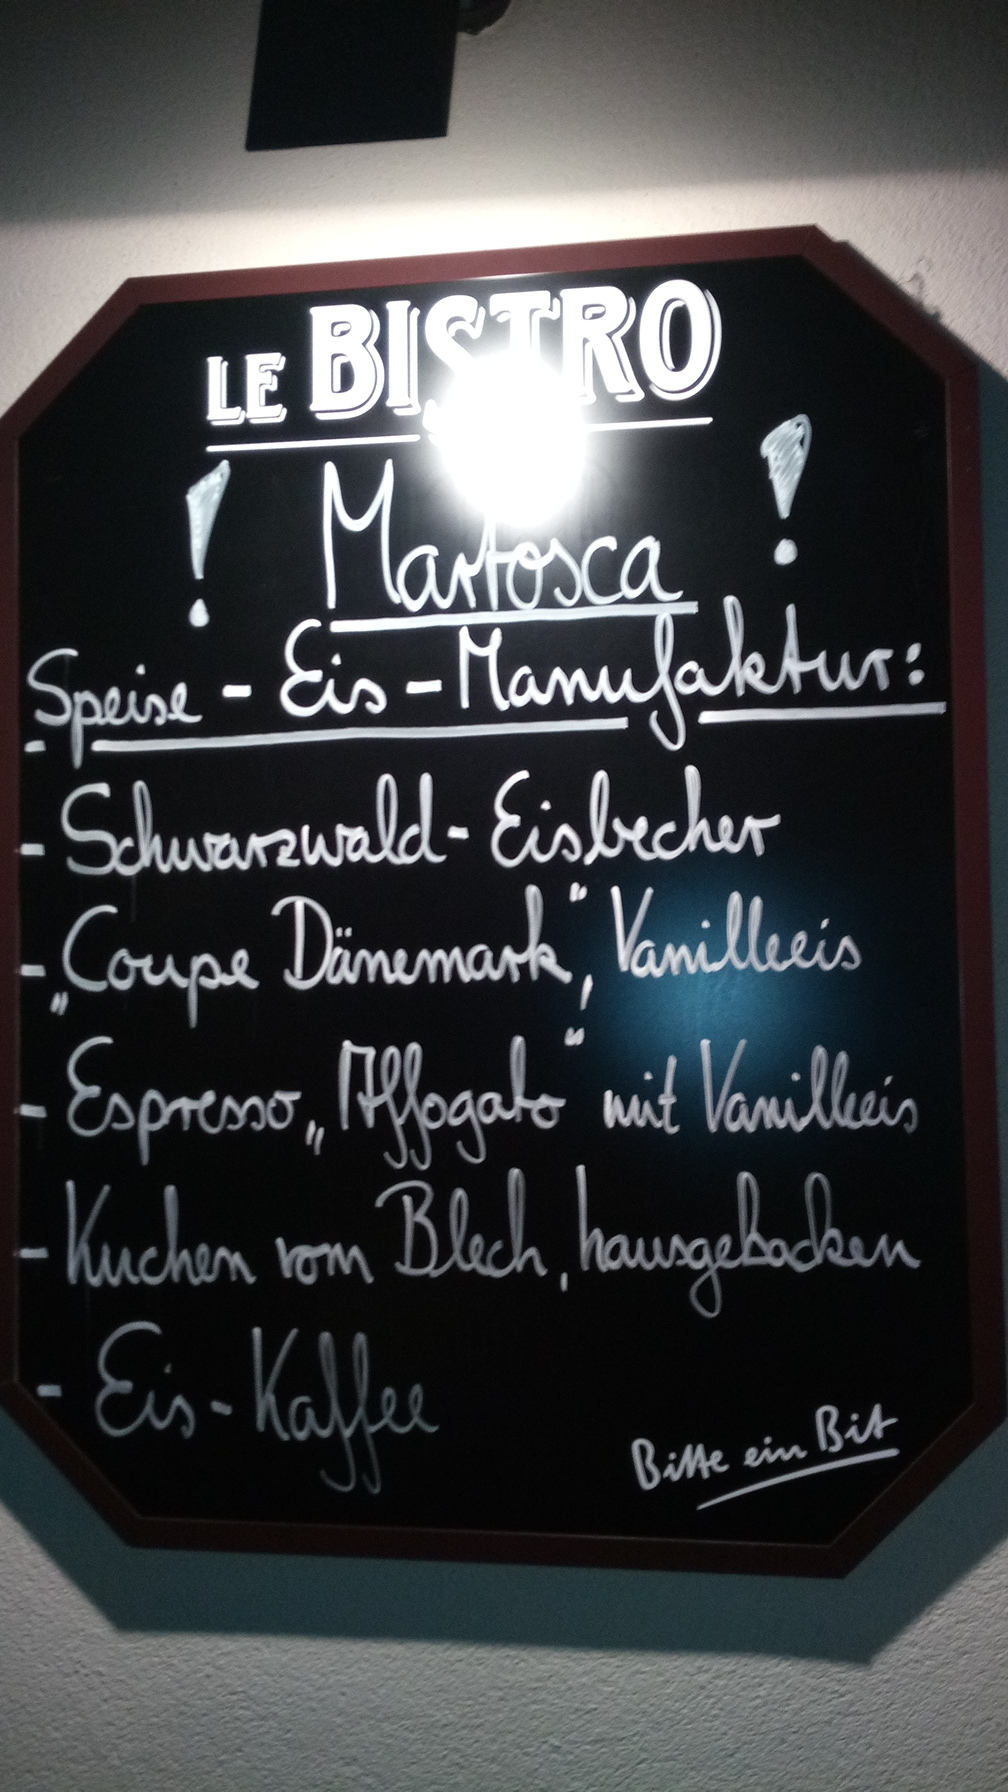 LE BISTRO
! Martosca !
Speise - Eis - Manufaktur:
- Schwarzwald - Eisbecher
- „Coupe Dänemark“, Vanilleeis
- Espresso „Affogato“ mit Vanilleeis
- Kuchen vom Blech, hausgebacken
- Eis - Kaffee
Bitte ein Bit